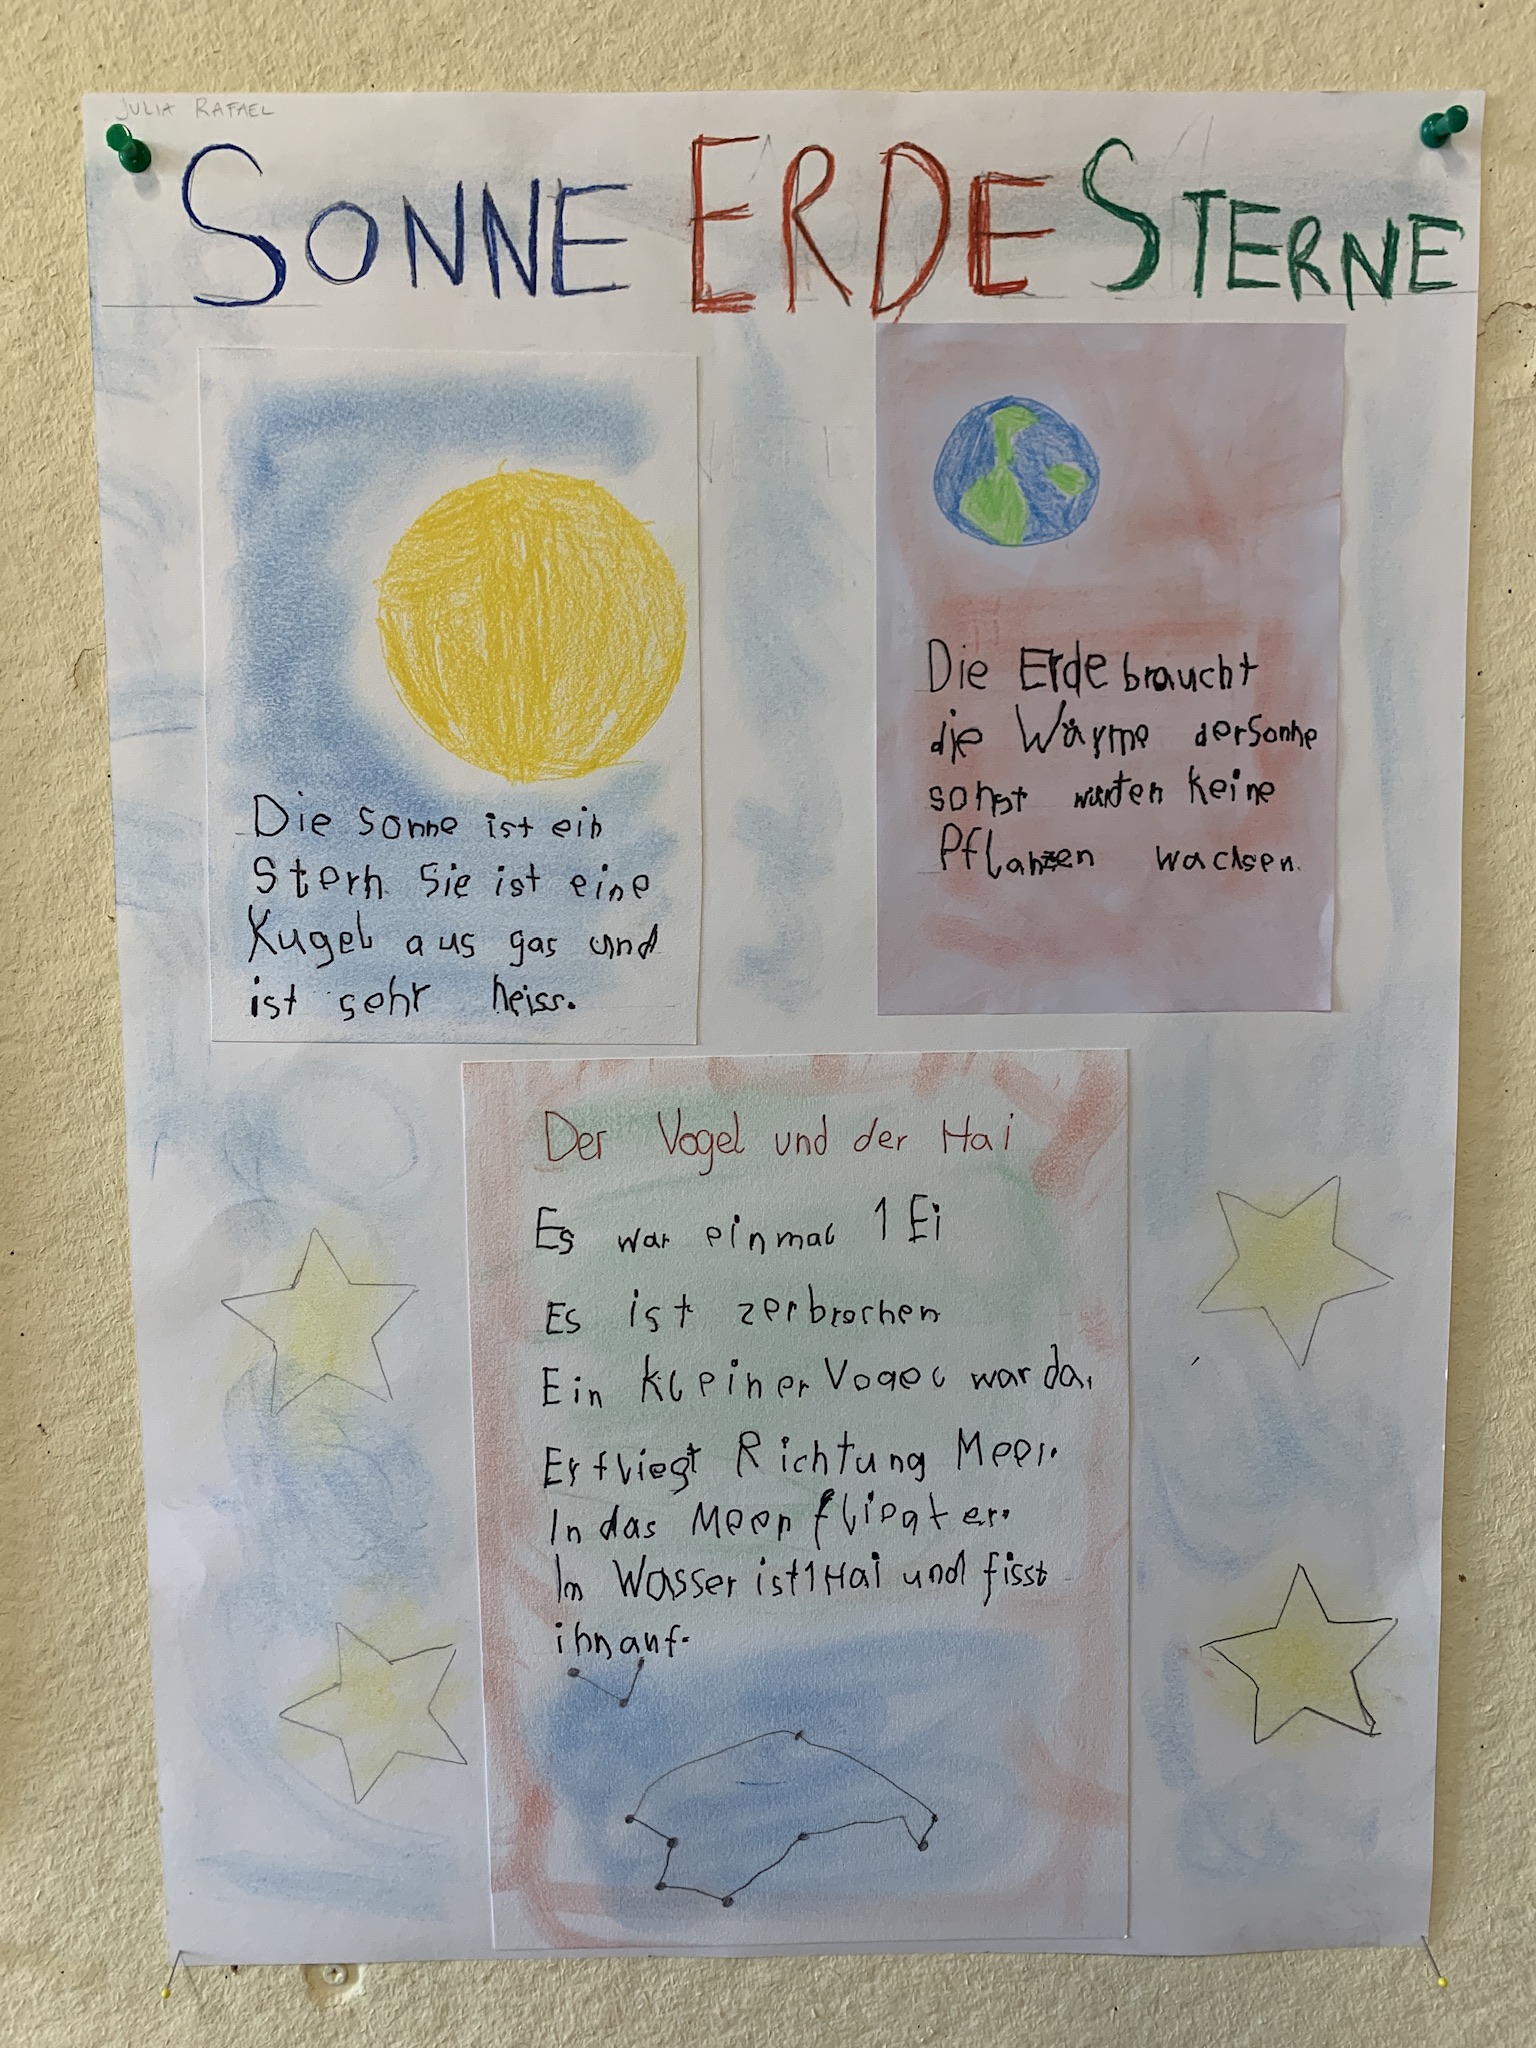 JULIA RAFAEL
SONNE ERDE STERNE
Die sonne ist ein
Stern Sie ist eine
Kugel aus gas und
ist sehr heiss.
Die Erde braucht
die Wärme der Sonne
sonst würten keine
Pflanzen wachsen.
Der Vogel und der Hai
Es war einmal 1 Ei
Es ist zerbrochen
Ein kleiner Vogel war da.
Er fliegt Richtung Meer.
In das Meer fliegt er.
Im Wasser ist 1 Hai und fisst
ihn auf.